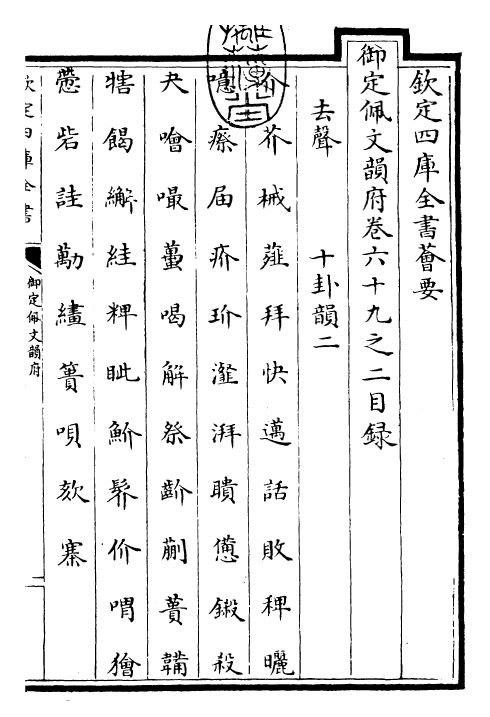 欽定四庫全書薈要
御定佩文韻府卷六十九之二目録
去聲 十卦韻二
介芥械薤拜快邁話敗稗曬
噫瘵届疥玠瀣湃聵憊鎩殺
夬噲嘬蠆喝解祭齘蒯蕢韛
犗餲繲絓粺眦魪髺价喟獪
懘砦詿勱繣簣唄欬寨
欽定四庫全書
御定佩文韻府